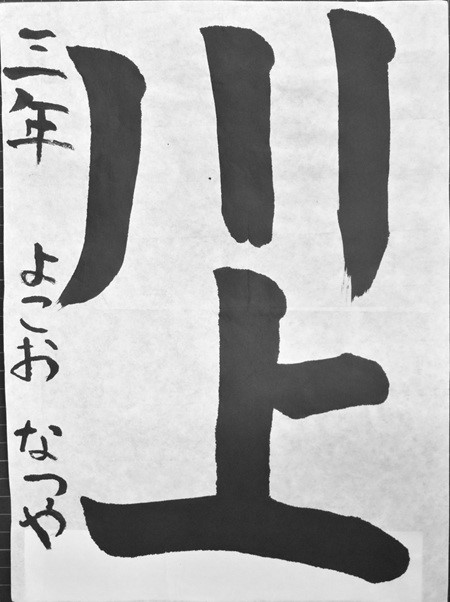 川上
三年 よこお なつや